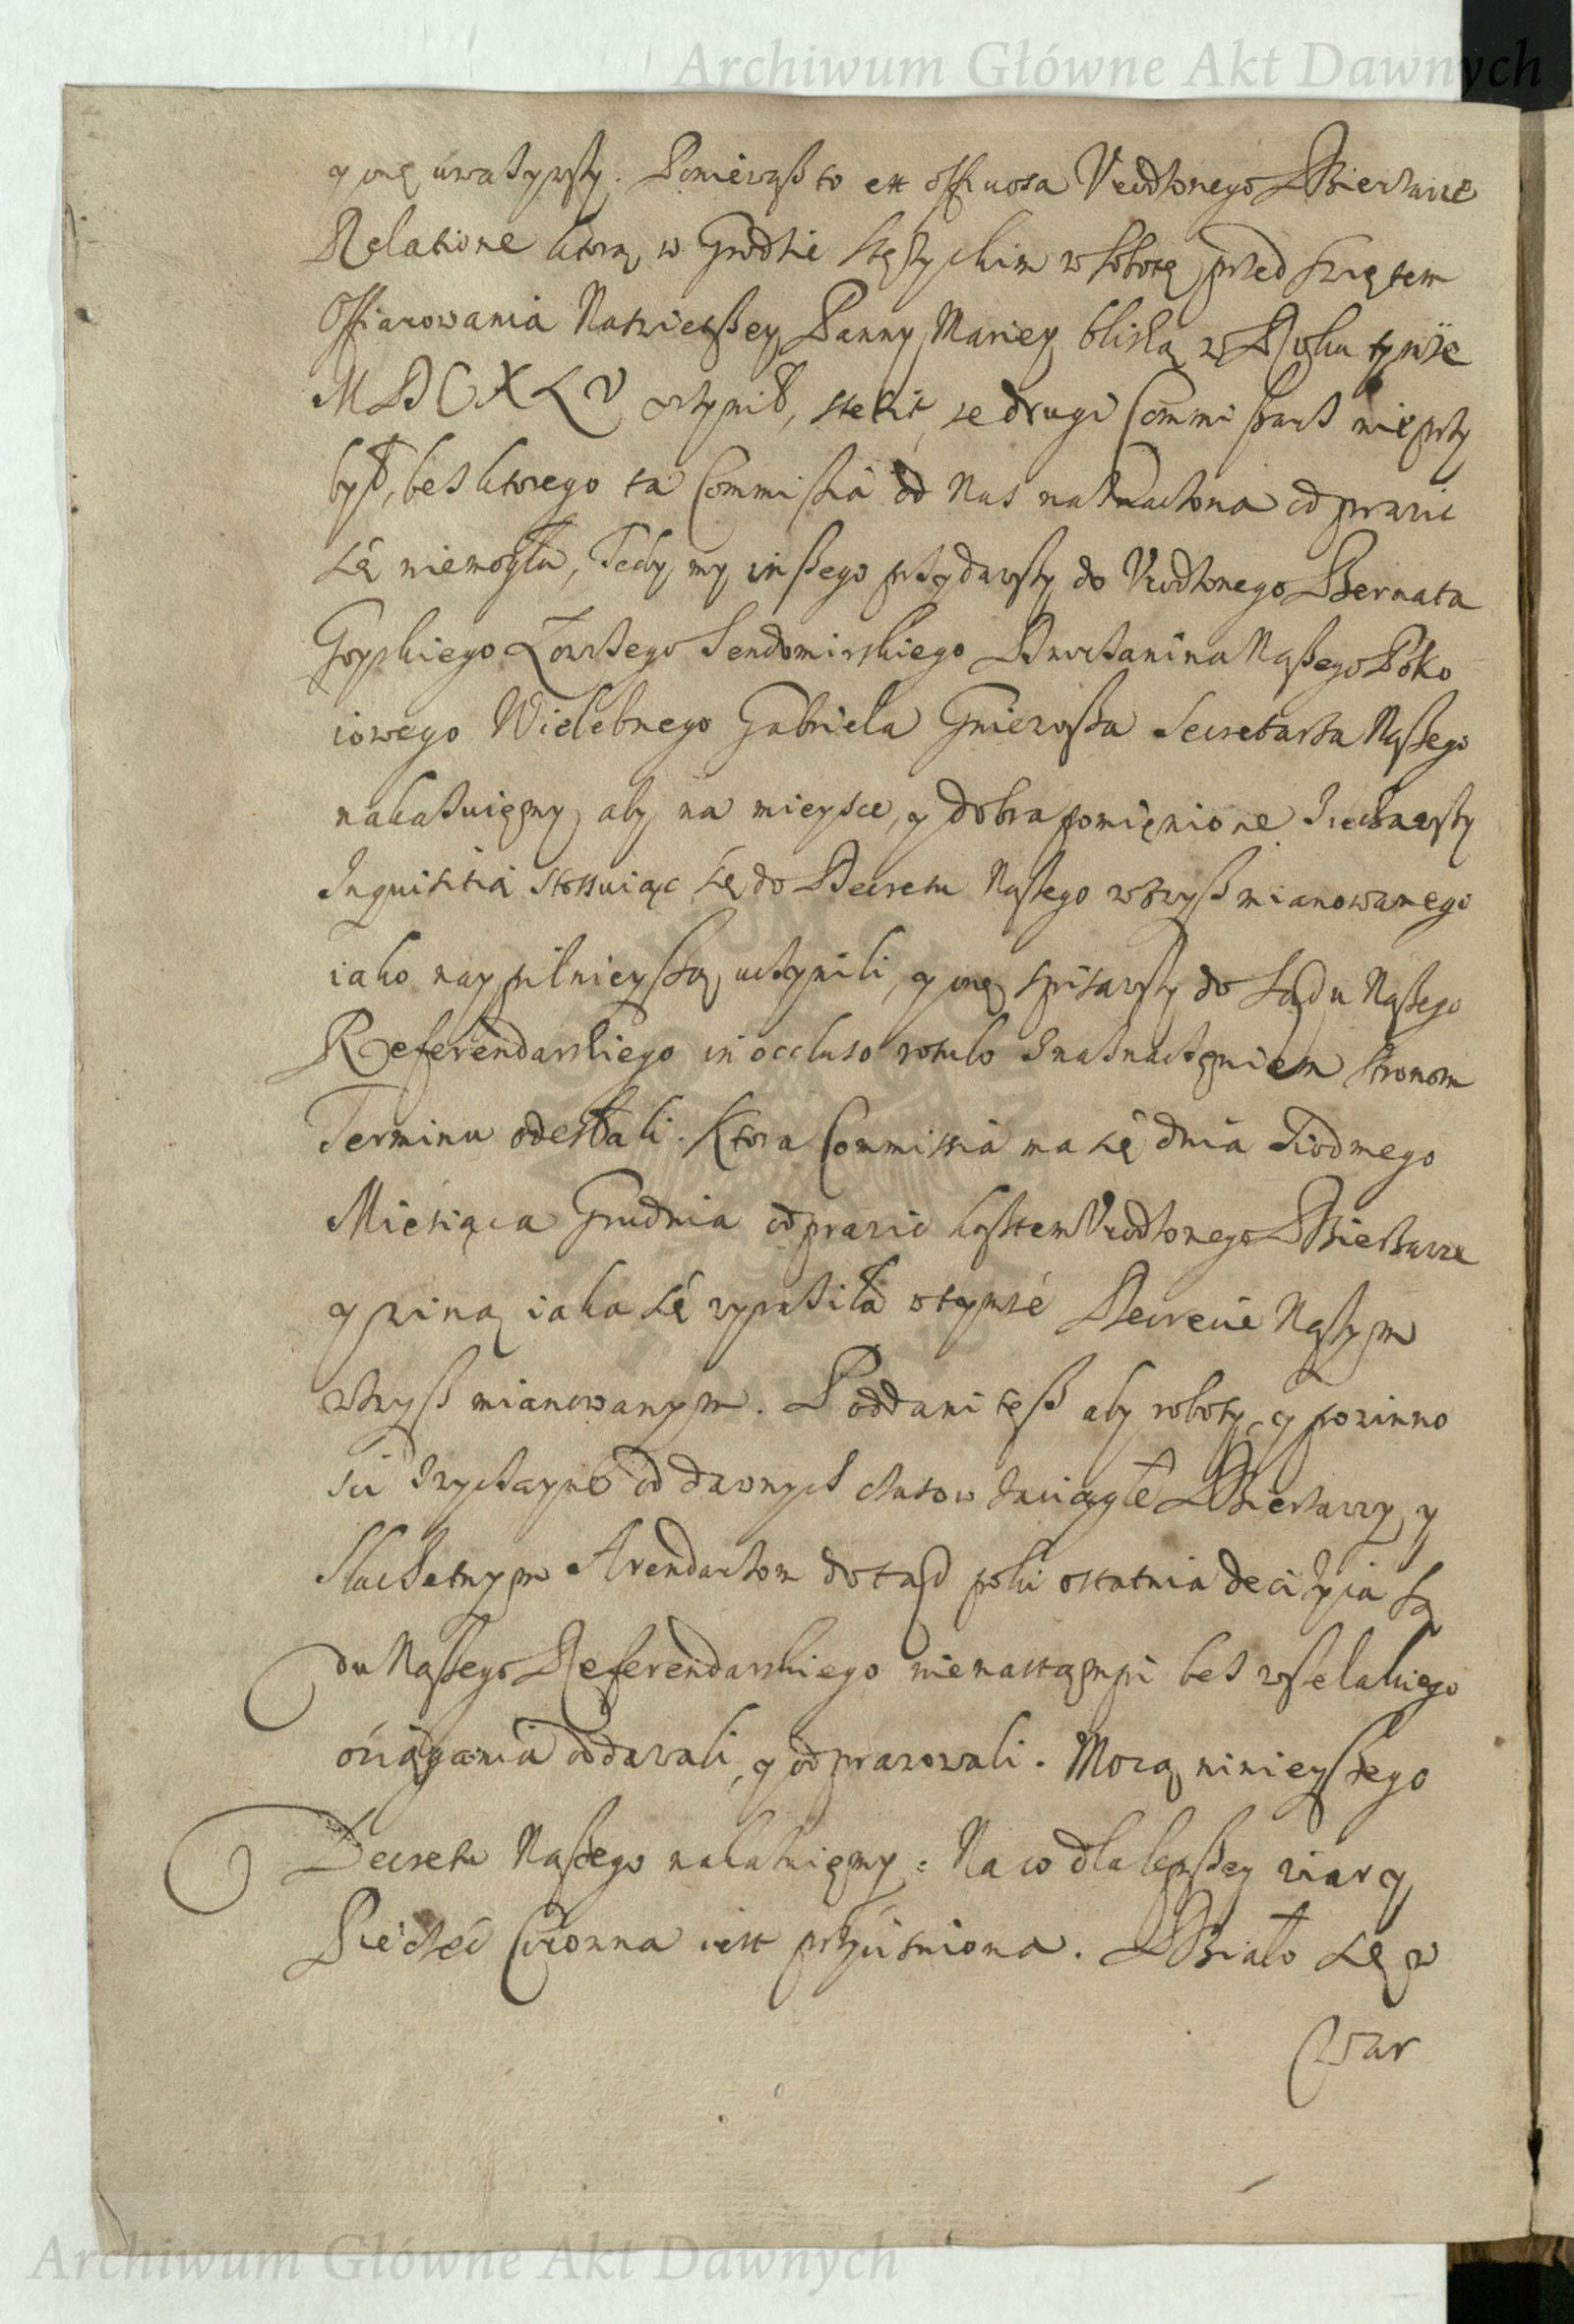 Archiwum Główne Akt Dawnych
y onę uważywszy. Ponieważ to ex officiosa Urodzonego Dzierżawce
Relatione ktorą w Grodzie Stężyckim w Sobotę przed Swiętem
Offiarowania Naswietszey Panny Mariey bliską w Roku tymże
MDCXLV uczynił, stekit, że drugi Commissarz nieprzy
był, bez ktorego ta Commissia od Nas naznaczona odprawic
się niemogła, Tedy my inszego przydawszy do Urodzonego Bernata
Goyskiego Łowczego Sendomirskiego Dworzanina Naszego Poko
iowego Wielebnego Gabriela Gniewosza Secretarza Naszego
nakazuięmy, aby na mieysce, y dobra pomięnione ziechawszy
Inquisitią stosuiąc się do Decretu Naszego wzwysz mianowanego
iako naypilnieyszą uczynili, y onę spisawszy do Sądu Naszego
Referendarskiego in occluso rotulo z naznaczęniem stronom
Terminu odesłali. Ktora Commissia ma się dnia Siodmego
Miesiąca Grudnia odprawic kosztem Urodzonego Dzierżawce
y winą iaka się wyraziła w tymże Decrecie Naszym
wzwysz mianowanym. Poddani tesz aby roboty, y powinno
sci zwyczayne od dawnych czasow zaciągłe Dzierżawcy, y
Slachetnym Arendarzom dotąd poki ostatnia decizyia Są
du Naszego Referendarskiego nienastąmpi bez wszelakiego
ociągania oddawali, y odprawowali. Mocą ninieyszego
Decretu Naszego nakazuięmy. Na co dla lepszey wiary
Pieczęć Coronna iest przycisniona. Działo się w
War
Archiwum Główne Akt Dawnych